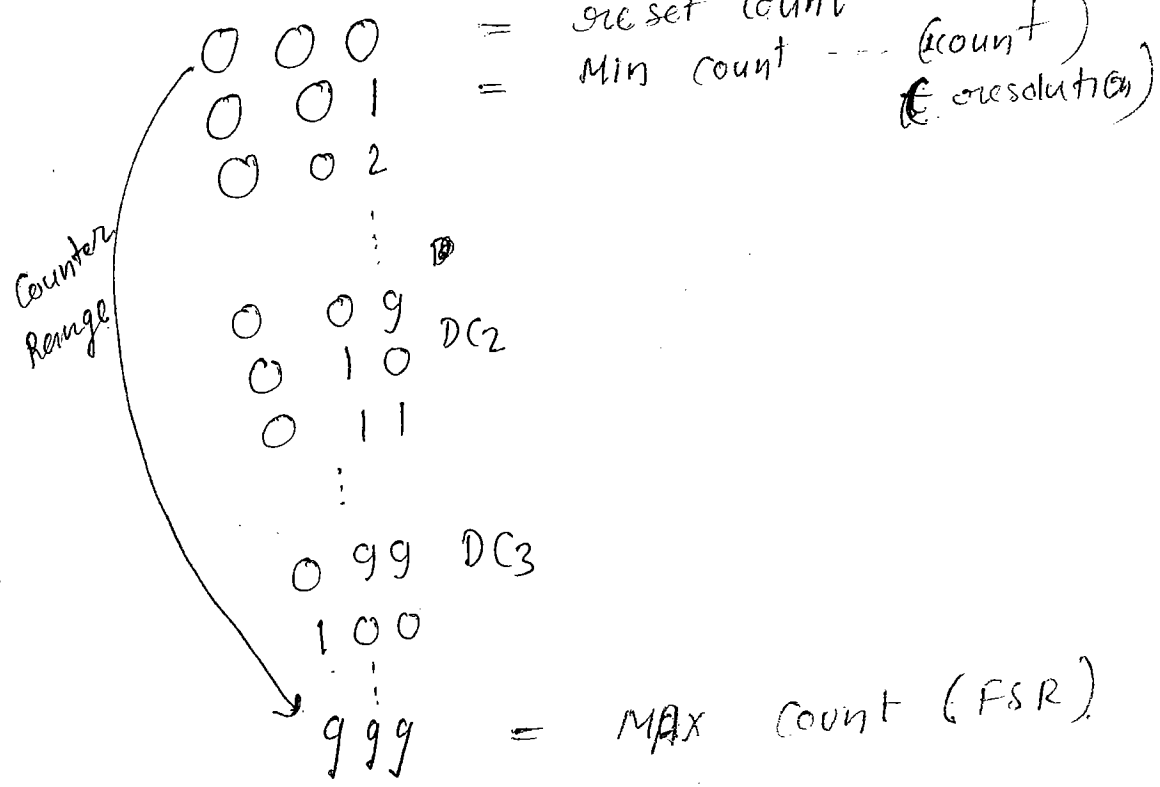 0 0 0 = reset count
0 0 1 = Min count --- (count)
(resolution)
0 0 2
Counter
Range
0 0 9
DC2
0 1 0
0 1 1
0 99 DC3
1 0 0
999 = MAX count (FSR)